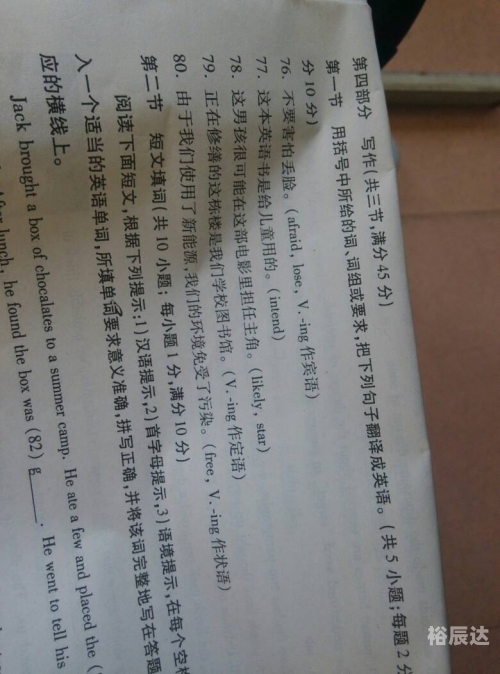 第四部分 写作(共三节,满分45分)
第一节 用括号中所给的词、词组或要求,把下列句子翻译成英语。(共5小题;每题2分
分10分)
76. 不要害怕丢脸。(afraid, lose, V.-ing 作宾语)
77. 这本英语书是给儿童用的。(intend)
78. 这男孩很可能在这部电影里担任主角。(likely, star)
79. 正在修缮的这栋楼是我们学校图书馆。(V.-ing 作定语)
80. 由于我们使用了新能源,我们的环境免受了污染。(free, V.-ing 作状语)
第二节 短文填词(共10小题;每小题1分,满分10分)
阅读下面短文,根据下列提示:1)汉语提示,2)首字母提示,3)语境提示,在每个空格
入一个适当的英语单词,所填单词要求意义准确,拼写正确,并将该词完整地写在答题
应的横线上。
Jack brought a box of chocalates to a summer camp. He ate a few and placed the (
lunch, he found the box was (82) g____. He went to tell his
裕辰达